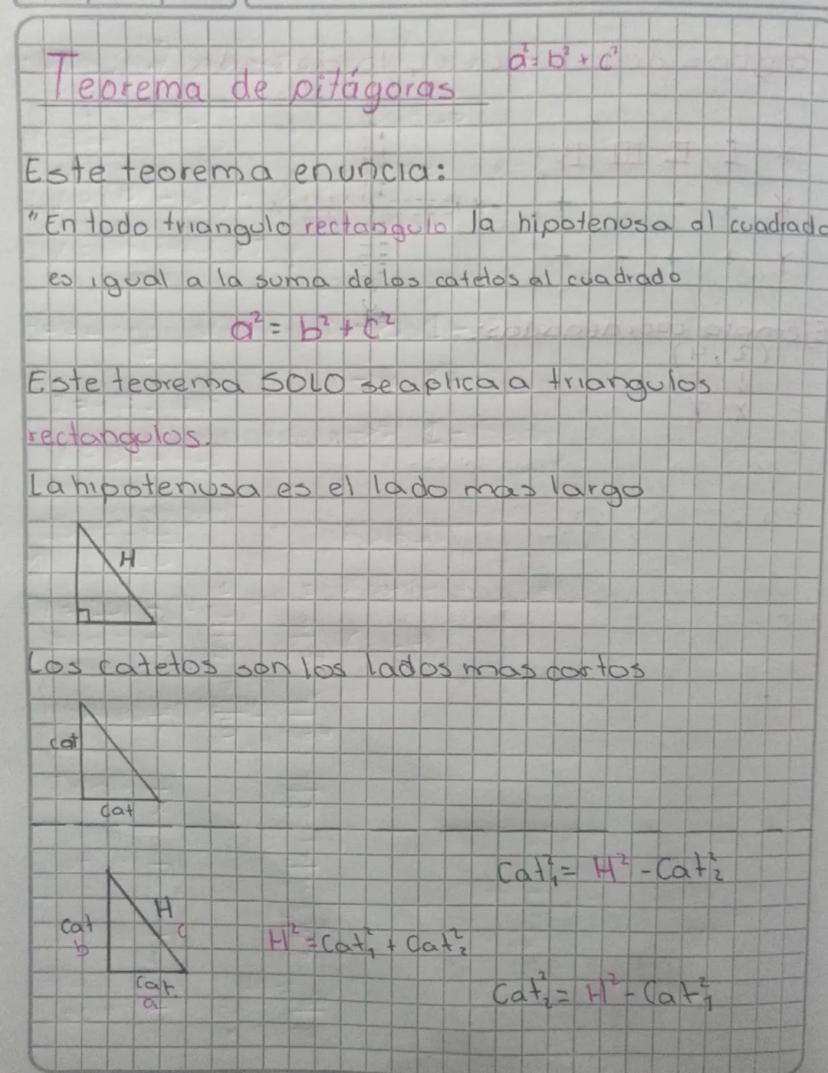 a² = b² + c²
Teorema de pitágoras
Este teorema enuncia:
"En todo triangulo rectangulo la hipotenusa al cuadrado
es igual a la suma de los catetos al cuadrado
a² = b² + c²
Este teorema SOLO se aplica a triangulos
rectangulos.
La hipotenusa es el lado mas largo
H
Los catetos son los lados mas cortos
cat
cat
Cat₁² = H² - Cat₂²
Cat H
b c
H² = Cat₁² + Cat₂²
Cat.
a
Cat₂² = H² - Cat₁²